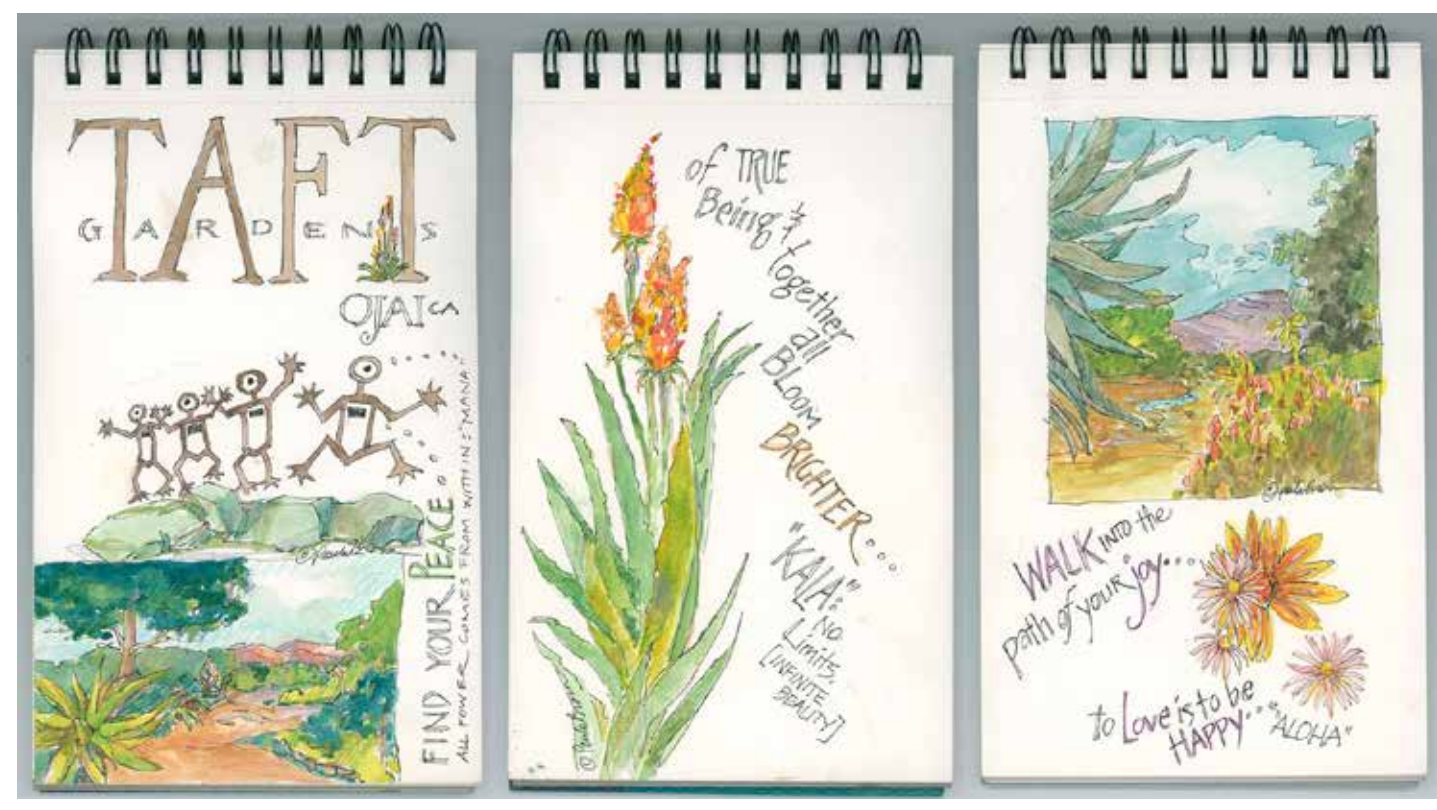 TAFT
GARDENS
OJAI CA
FIND YOUR PEACE...
ALL POWER COMES FROM WITHIN = "MANA"
of TRUE
Being &
together
all
BLOOM
BRIGHTER...
"KALA":
NO
Limits.
[INFINITE
BEAUTY]
WALK INTO the
path of your joy...
to Love is to be
HAPPY... "ALOHA"